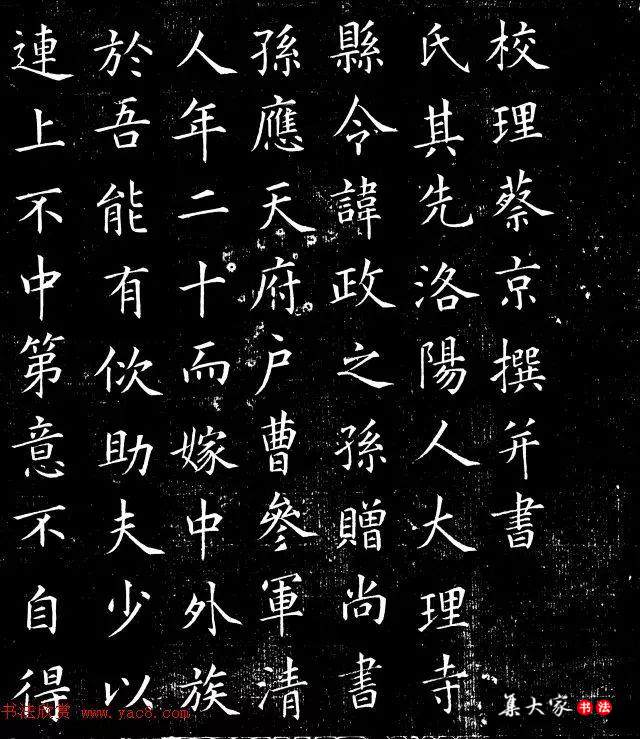 校理蔡京撰并書
氏其先洛陽人大理寺
縣令諱政之孫贈尚書
孫應天府户曹參軍清
人年二十而嫁中外族
於吾能有佽助夫少以
連上不中第意不自得
集大家书法
书法欣赏 www.yac8.com